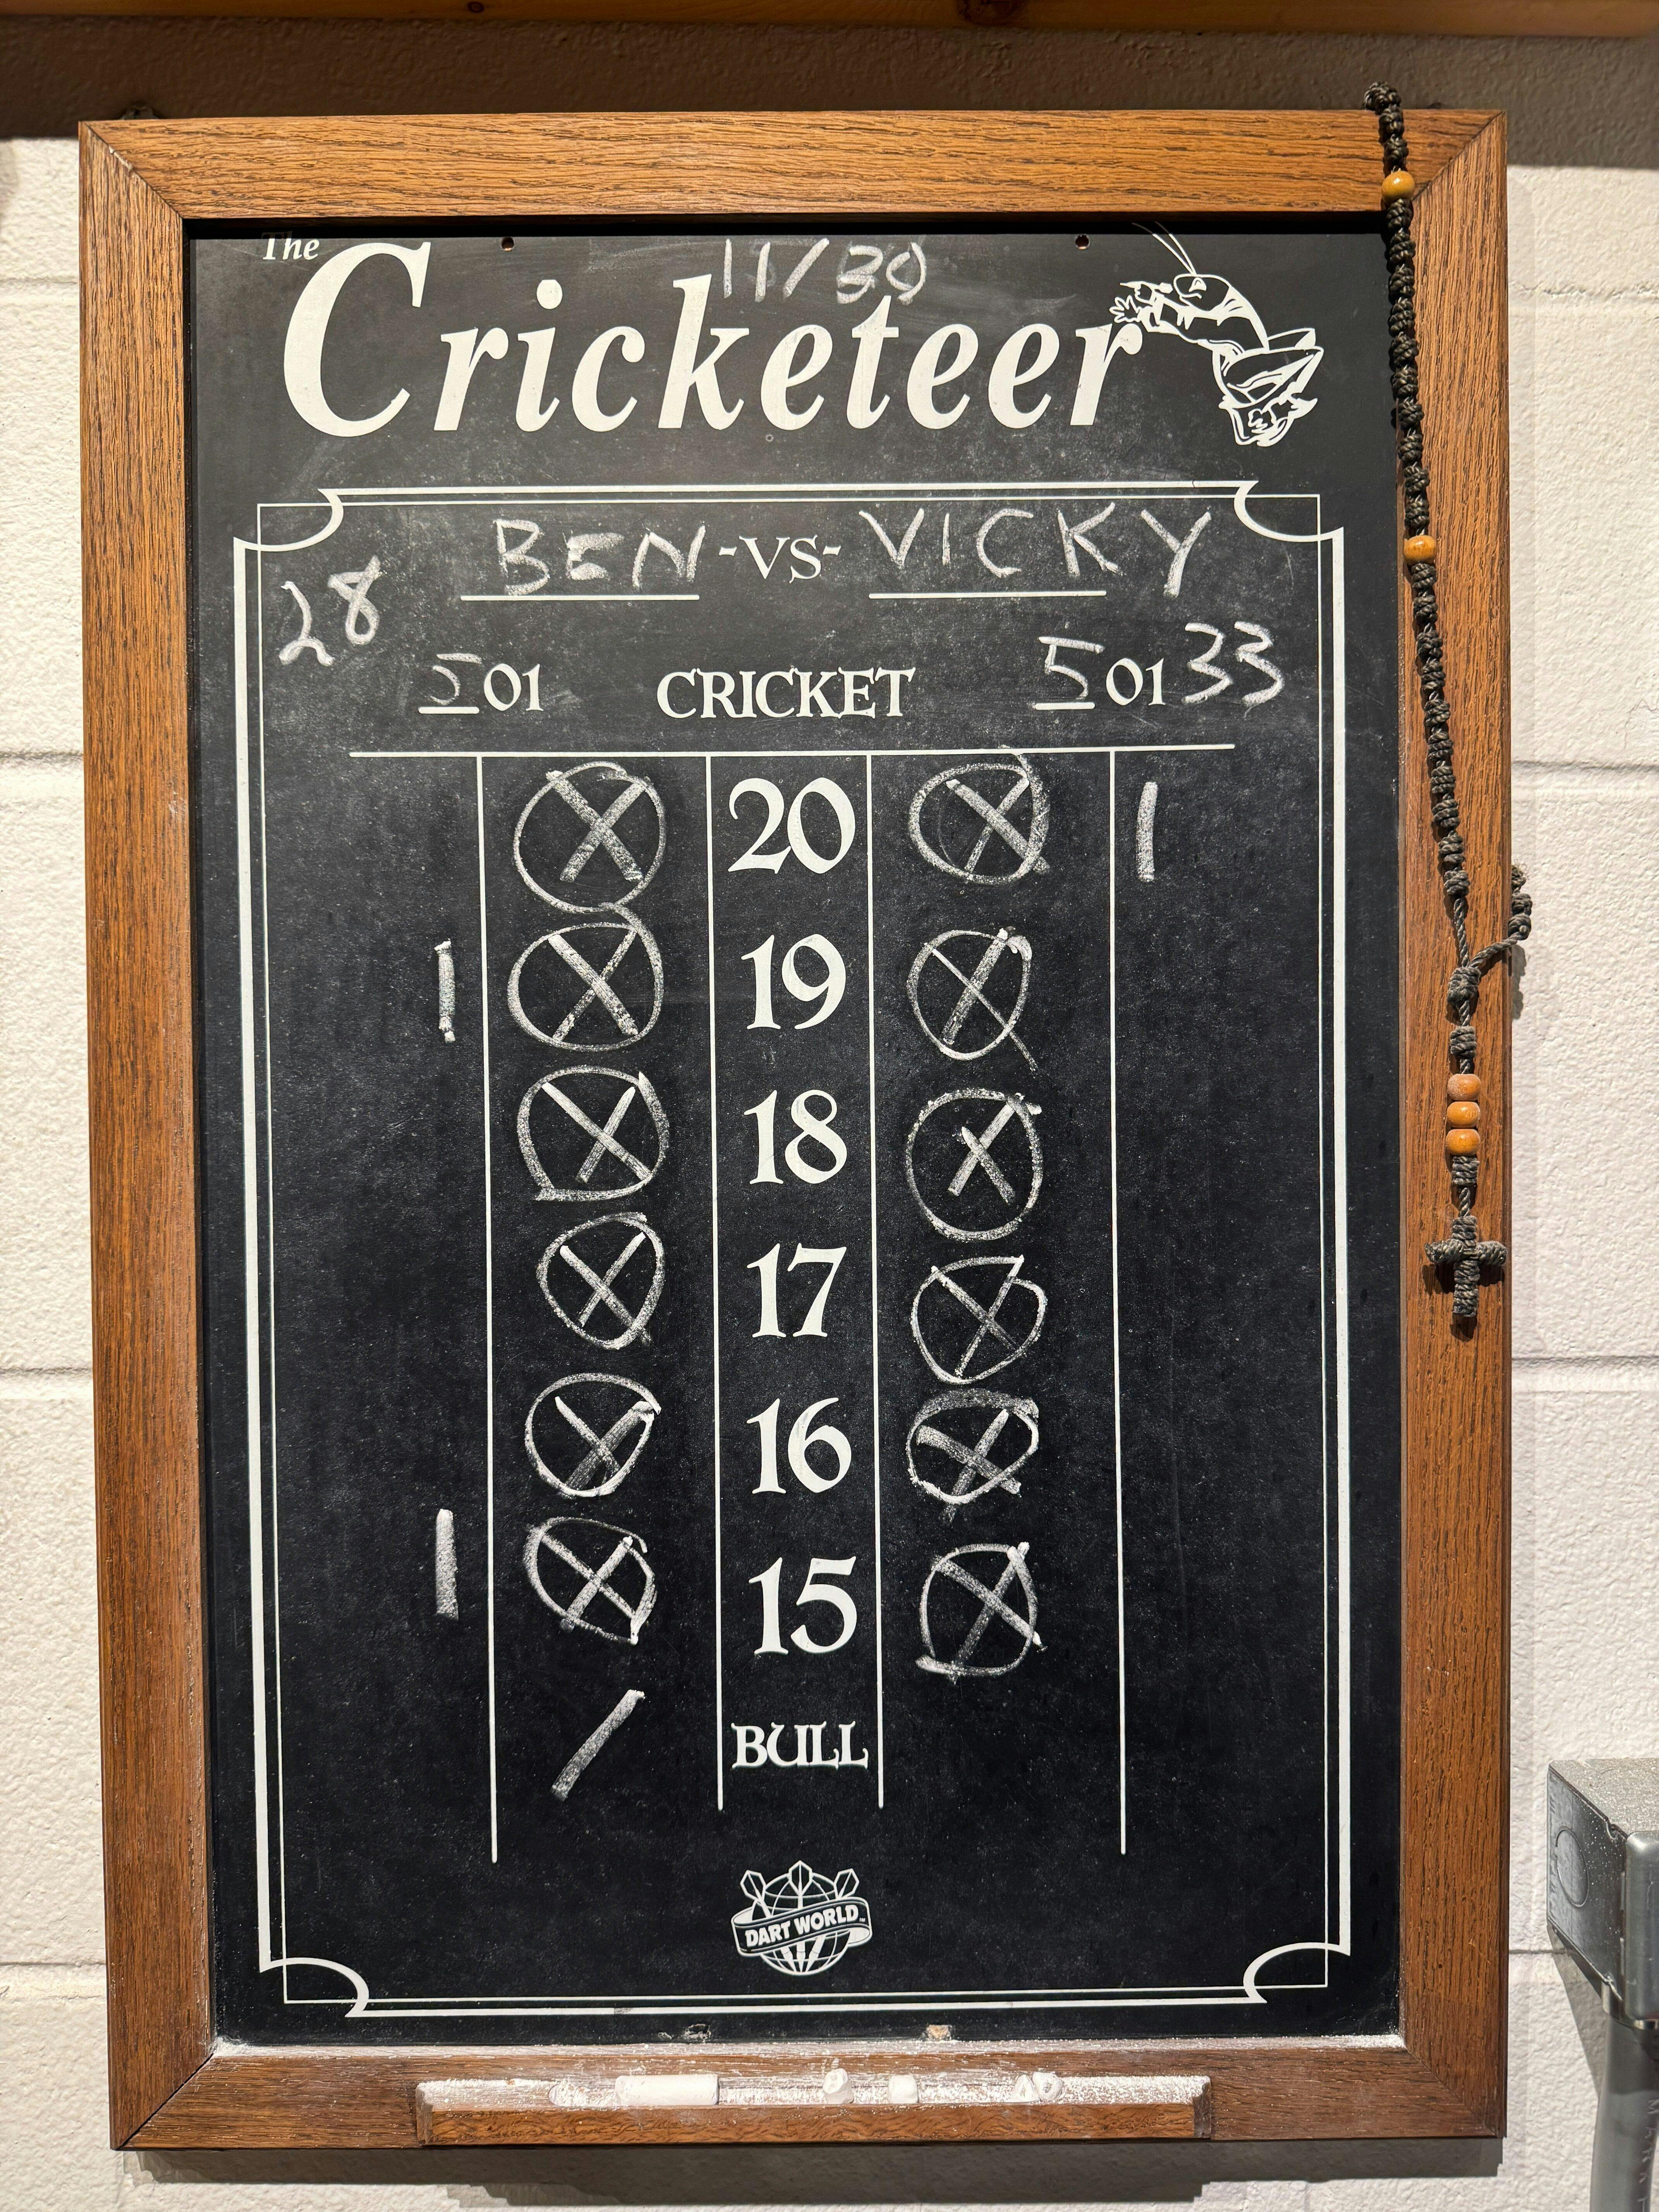 The
11/30
Cricketeer
BEN -VS- VICKY
28
501 CRICKET 501 33
20 1
1 19
18
17
16
1 15
/ BULL
DART WORLD